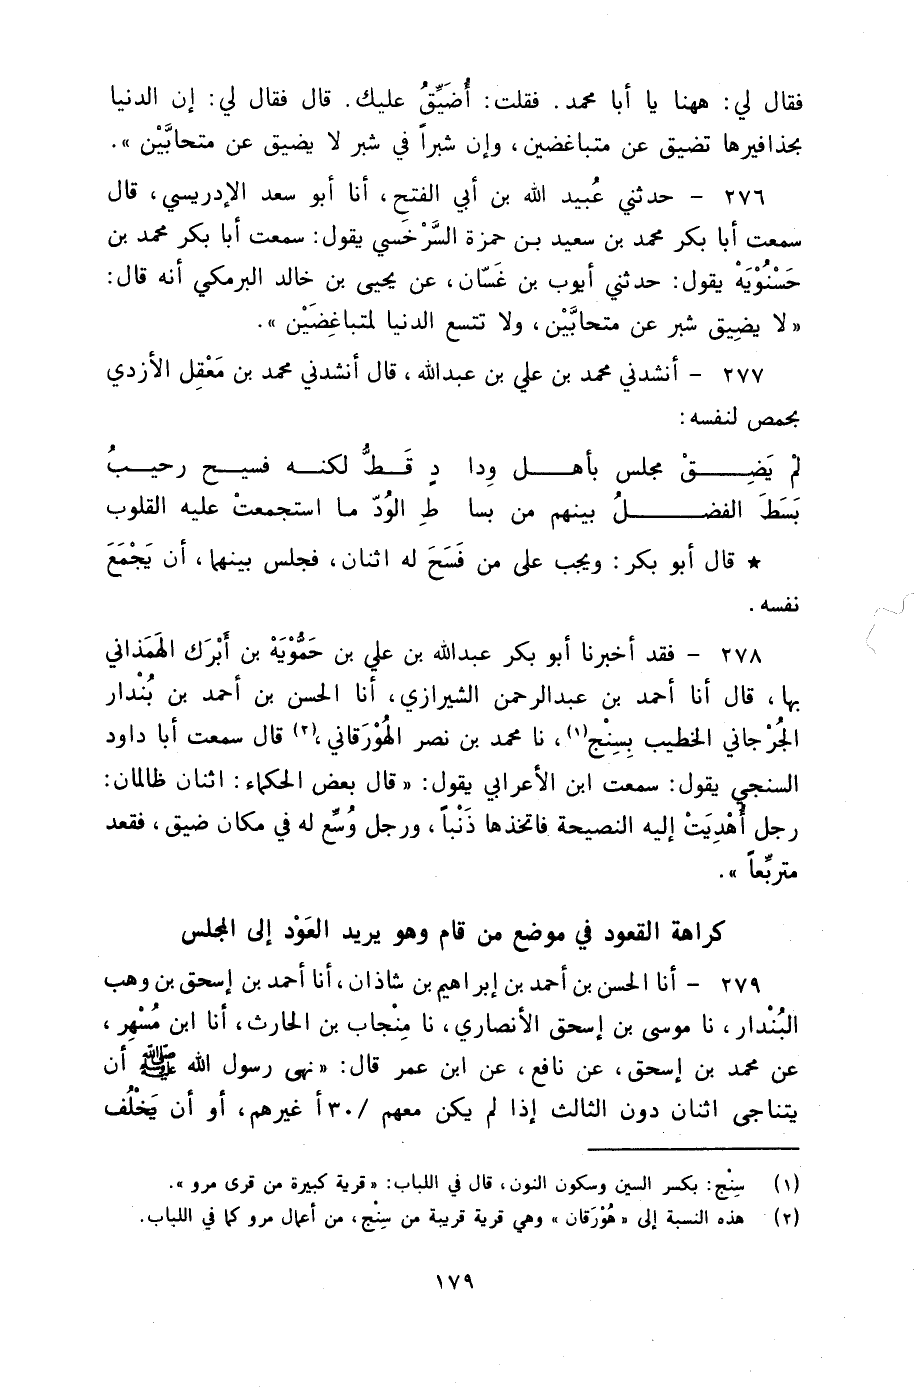 فقال لي: ههنا يا أبا محمد. فقلت: أُضَيِّقُ عليك. قال فقال لي: إن الدنيا
بحذافيرها تضيق عن متباغضين، وإن شبراً في شبر لا يضيق عن متحابَّيْن».
٢٧٦ - حدثني عُبيد الله بن أبي الفتح، أنا أبو سعد الإدريسي، قال
سمعت أبا بكر محمد بن سعيد بن حمزة السَّرْخَسي يقول: سمعت أبا بكر محمد بن
حَسْنُوْيَهْ يقول: حدثني أيوب بن غَسّان، عن يحيى بن خالد البرمكي أنه قال:
«لا يضِيق شبر عن متحابَّيْن، ولا تتسع الدنيا لمتباغِضَيْن».
٢٧٧ - أنشدني محمد بن علي بن عبدالله، قال أنشدني محمد بن مَعْقِل الأزدي
بحمص لنفسه:
لمْ يَضِــــقْ مجلس بأهــل وِدا دٍ قَــطُّ لكنــه فسيــح رحيــبُ
بَسَطَ الفضــــلُ بينهم من بسا طِ الوُدّ ما استجمعتْ عليه القلوب
★ قال أبو بكر: ويجب على من فَسَحَ له اثنان، فجلس بينهما، أن يَجْمَعَ
نفسه.
٢٧٨ - فقد أخبرنا أبو بكر عبدالله بن علي بن حَمُّوْيَهْ بن أَبْرَك الهَمَذاني
بها، قال أنا أحمد بن عبدالرحمن الشيرازي، أنا الحسن بن أحمد بن بُنْدار
الجُرْجاني الخطيب بِسِنْج(١)، نا محمد بن نصر الهُوْرَقاني،(٢) قال سمعت أبا داود
السنجي يقول: سمعت ابن الأعرابي يقول: «قال بعض الحكماء: اثنان ظالمان:
رجل أُهْدِيَتْ إليه النصيحة فاتخذها ذَنْباً، ورجل وُسِّع له في مكان ضيق، فقعد
متربِّعاً».
كراهة القعود في موضع من قام وهو يريد العَوْد إلى المجلس
٢٧٩ - أنا الحسن بن أحمد بن إبراهيم بن شاذان، أنا أحمد بن إسحق بن وهب
البُنْدار، نا موسى بن إسحق الأنصاري، نا مِنْجاب بن الحارث، أنا ابن مُسْهِر،
عن محمد بن إسحق، عن نافع، عن ابن عمر قال: «نهى رسول الله ﷺ أن
يتناجى اثنان دون الثالث إذا لم يكن معهم /٣٠أ غيرهم، أو أن يَخْلُف
(١) سِنْج: بكسر السين وسكون النون، قال في اللباب: «قرية كبيرة من قرى مرو».
(٢) هذه النسبة إلى «هُوْرَقان» وهي قرية قريبة من سِنْج، من أعمال مرو كما في اللباب.
١٧٩